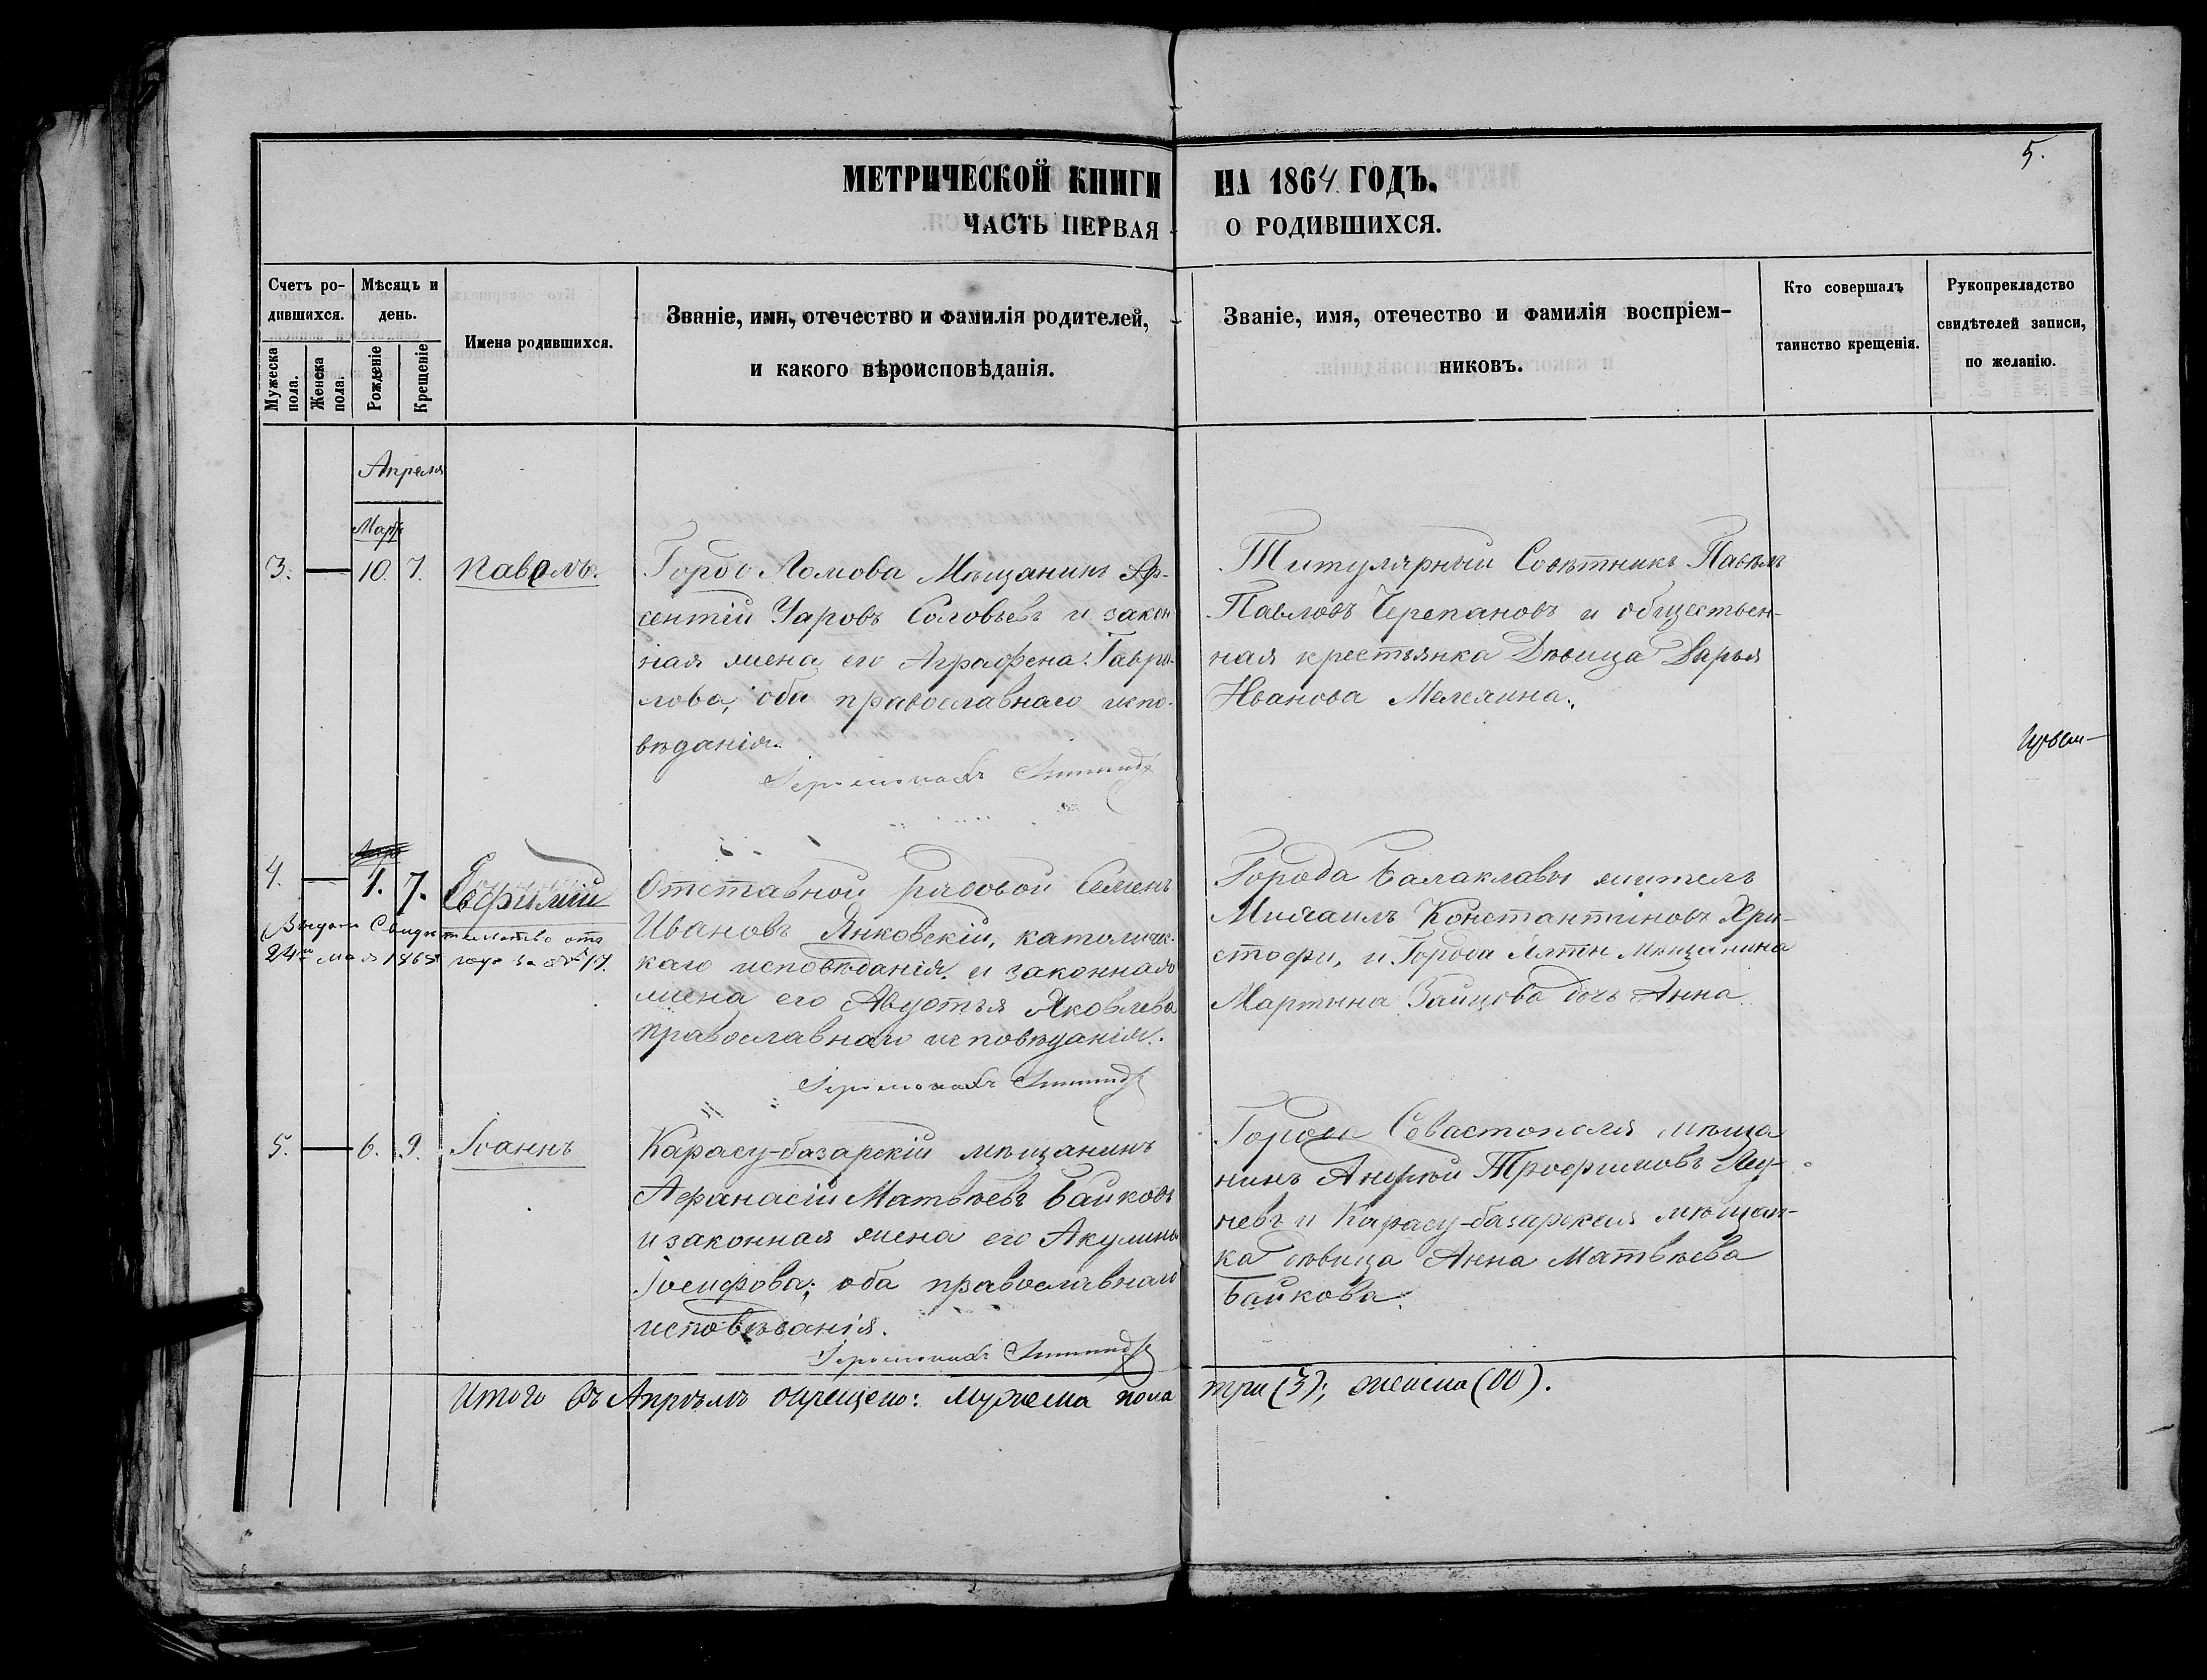 5.
МЕТРИЧЕСКОЙ КНИГИ НА 1864 ГОДЪ.
ЧАСТЬ ПЕРВАЯ О РОДИВШИХСЯ.
Счетъ ро-
дившихся.
Мужеска
пола.
Женска
пола.
Мѣсяцъ и
день.
Рожденіе
Крещеніе
Имена родившихся.
Званіе, имя, отечество и фамилія родителей,
и какого вѣроисповѣданія.
Званіе, имя, отечество и фамилія воспріем-
никовъ.
Кто совершалъ
таинство крещенія.
Рукоприкладство
свидѣтелей записи,
по желанію.
Апреля
Мар
3. 10. 7. Павелъ.
Ломова Мѣщанинъ Ар-
сентій Соловьевъ и закон
ная жена его Аграфена Гаври-
лова, оба православнаго испо-
вѣданія.
Іеромонахъ
Титулярный Совѣтникъ Павелъ
Павловъ Черепановъ и обществен-
ная крестьянка Дѣвица Дарья
Иванова
4. 1. 7. Евфимій
Выдано Свидѣтельство отъ
24го мая 186 года за №
Отставной рядовой Семенъ
Ивановъ Янковскій, католичес-
каго исповѣданія и законная
жена его Авдотья Яковлева
православнаго исповѣданія.
Іеромонахъ
Города Балаклавы житель
Михаилъ Константиновъ Хри-
стофи, и Города Ялты Мѣщанина
Мартына Зайцова дочь Анна
5. 6. 9. Іоаннъ
Карасу-базарскій мѣщанинъ
Афанасій Матвѣевъ Байковъ
и законная жена его Акулина
Іосифова; оба православнаго
исповѣданія.
Іеромонахъ
Города Севастополя мѣща
нинъ Андрей Трофимовъ
невъ и Карасу-базарская мѣщан-
ка дѣвица Анна Матвѣева
Байкова.
Итого въ Апрѣлѣ окрещено: мужеска пола три (3); женска (00).